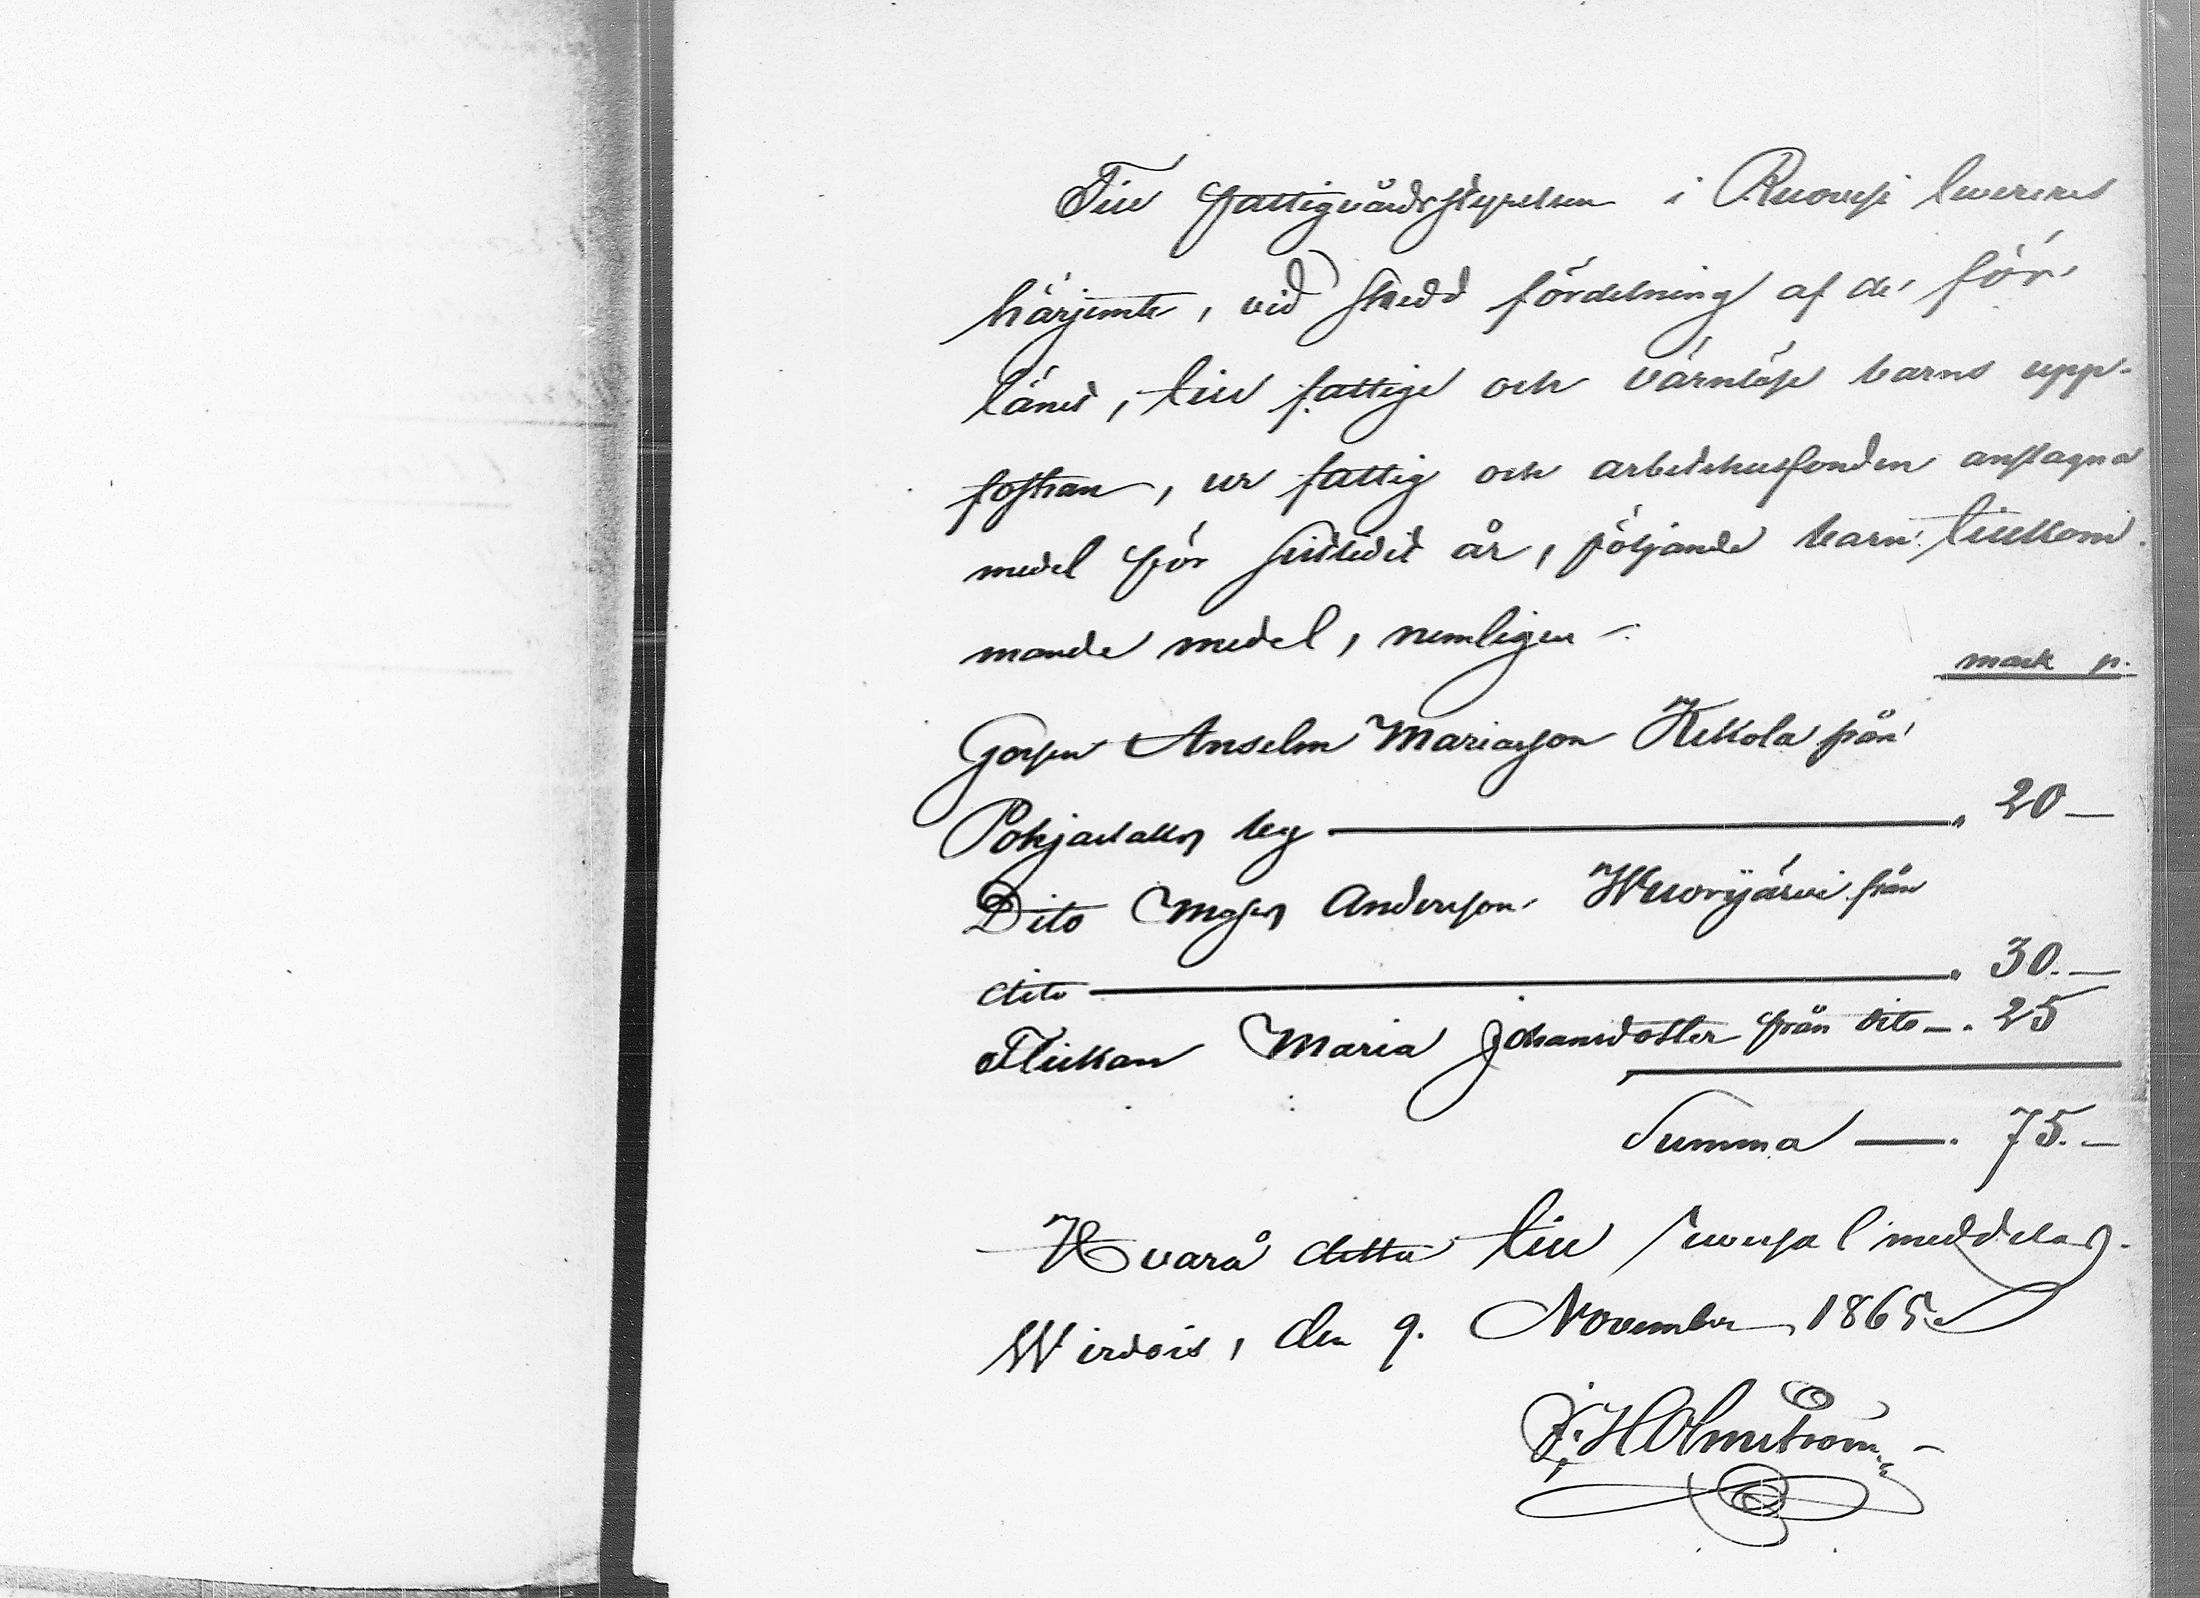 Till Fattigvårdsstyrelsen i Ruovesi levereres
härjemte, vid skedd fördelning af de för
länet, till fattige och värnlöse barns upp-
fostran, ur fattig och arbetshusfonden anslagna
medel för sistledit år, följande barn tillkom-
mande medel, nemligen:
mark p.
Gossen Anselm Mariasson Kekola från
Pohjaslaks by — " 20 —
Dito Anderson Wuorijärvi från
dito — " 30. —
Flickan Maria Johansdotter från dito — " 25
Summa — " 75. —
Hvarå detta till reversal meddelas.
Wirdois, den 9. November 1865.
Holmström